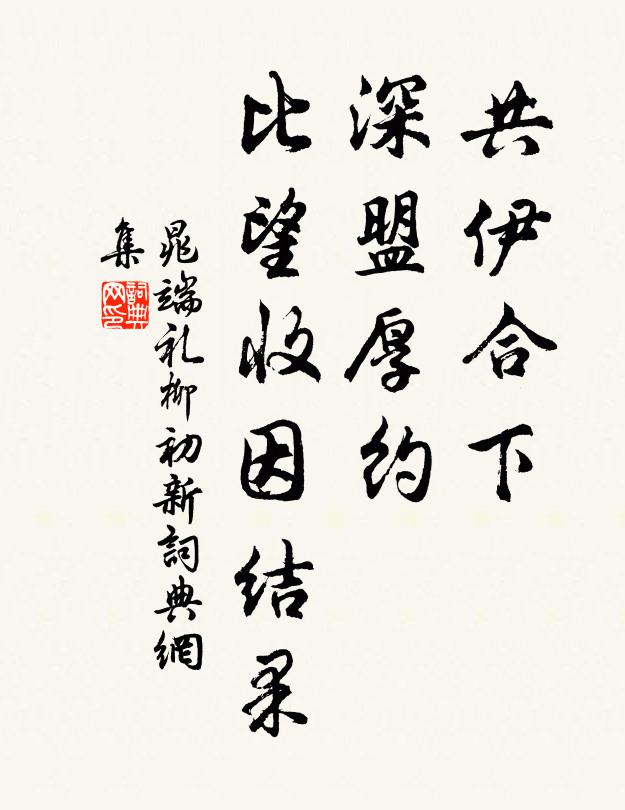 共伊合下
深盟厚约
比望收因结果
晁端礼柳初新詞典網
集
詞典
网印